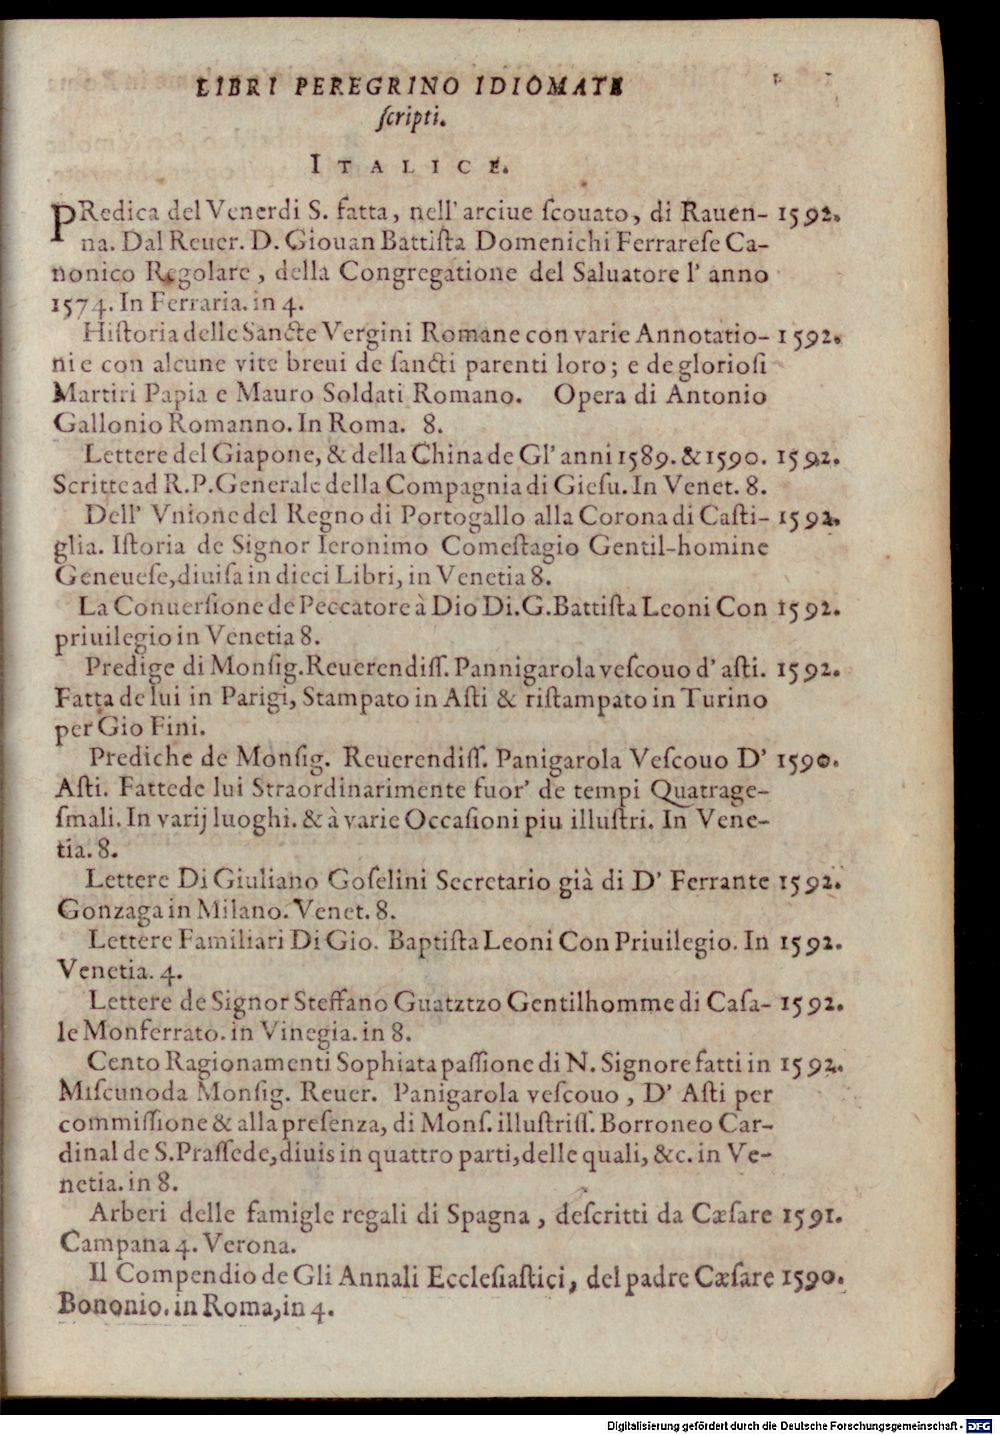 LIBRI PEREGRINO IDIOMATE
ſcripti.
ITALICE.
PRedica del Venerdi S. fatta, nell' arciue ſcouato, di Rauen- 1592.
na. Dal Reuer. D. Giouan Battiſta Domenichi Ferrareſe Ca-
nonico Regolare, della Congregatione del Saluatore l' anno
1574. In Ferraria. in 4.
Hiſtoria delle Sancte Vergini Romane con varie Annotatio- 1592.
ni e con alcune vite breui de ſancti parenti loro; e de glorioſi
Martiri Papia e Mauro Soldati Romano. Opera di Antonio
Gallonio Romanno. In Roma. 8.
Lettere del Giapone, & della China de Gl' anni 1589. & 1590. 1592.
Scritte ad R.P. Generale della Compagnia di Gieſu. In Venet. 8.
Dell' Vnione del Regno di Portogallo alla Corona di Caſti- 1592.
glia. Iſtoria de Signor Ieronimo Comeſtagio Gentil-homine
Geneueſe, diuiſa in dieci Libri, in Venetia 8.
La Conuerſione de Peccatore à Dio Di. G. Battiſta Leoni Con 1592.
priuilegio in Venetia 8.
Predige di Monſig. Reuerendiſſ. Pannigarola veſcouo d' aſti. 1592.
Fatta de lui in Parigi, Stampato in Aſti & riſtampato in Turino
per Gio Fini.
Prediche de Monſig. Reuerendiſſ. Panigarola Veſcouo D' 1590.
Aſti. Fattede lui Straordinarimente fuor' de tempi Quatrage-
ſmali. In varij luoghi. & à varie Occaſioni piu illuſtri. In Vene-
tia. 8.
Lettere Di Giuliano Goſelini Secretario già di D' Ferrante 1592.
Gonzaga in Milano. Venet. 8.
Lettere Familiari Di Gio. Baptiſta Leoni Con Priuilegio. In 1592.
Venetia. 4.
Lettere de Signor Steffano Guatztzo Gentilhomme di Caſa- 1592.
le Monferrato. in Vinegia. in 8.
Cento Ragionamenti Sophiata paſſione di N. Signore fatti in 1592.
Miſcunoda Monſig. Reuer. Panigarola veſcouo, D' Aſti per
commiſſione & alla preſenza, di Monſ. illuſtriſſ. Borroneo Car-
dinal de S. Praſſede, diuis in quattro parti, delle quali, &c. in Ve-
netia. in 8.
Arberi delle famigle regali di Spagna, deſcritti da Cæſare 1591.
Campana 4. Verona.
Il Compendio de Gli Annali Eccleſiaſtici, del padre Cæſare 1590.
Bononio. in Roma, in 4.
Digitalisierung gefördert durch die Deutsche Forschungsgemeinschaft - DFG